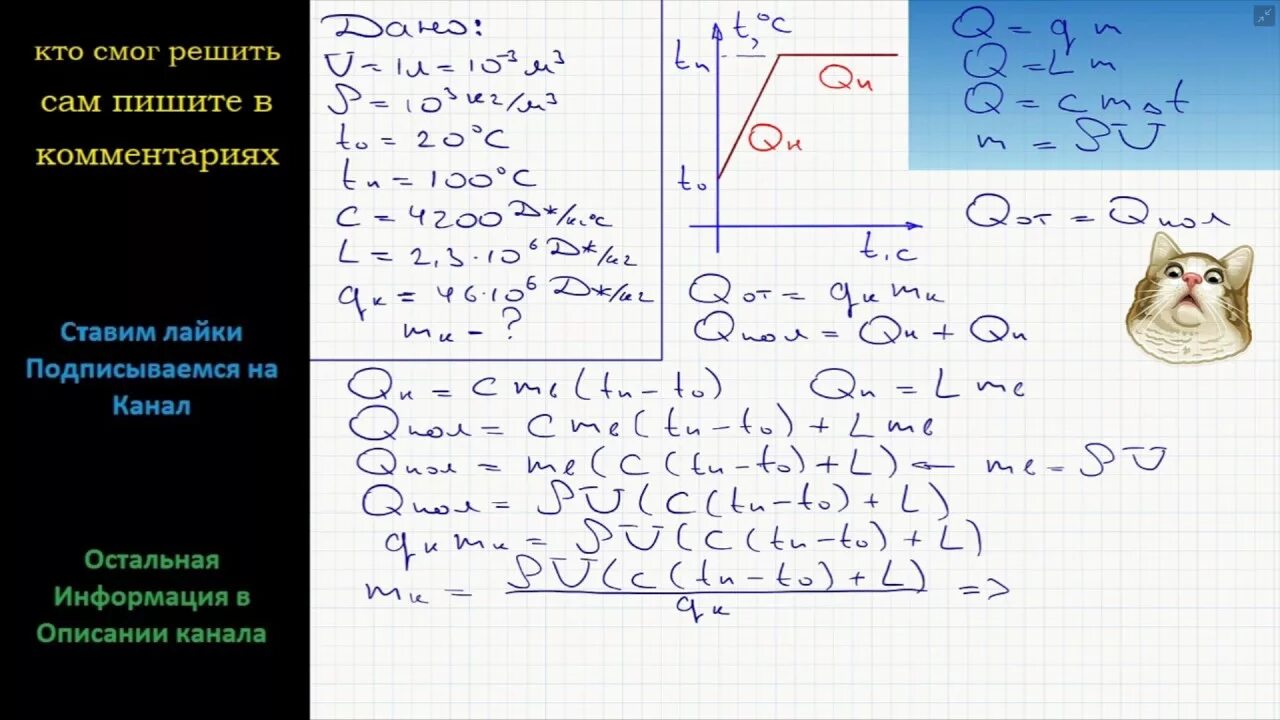 кто смог решить
сам пишите в
комментариях
Ставим лайки
Подписываемся на
Канал
Остальная
Информация в
Описании канала
Дано:
V = 1л = 10⁻³ м³
ρ = 10³ кг/м³
t₀ = 20°C
tп = 100°C
C = 4200 Дж/кг·°C
L = 2,3·10⁶ Дж/кг
qк = 46·10⁶ Дж/кг
mк - ?
t, °C
tп
Qп
Qн
t₀
t, с
Q = q m
Q = L m
Q = c m Δt
m = ρV
Qот = Qпол
Qот = qк mк
Qпол = Qн + Qп
Qн = C mв (tп - t₀)   Qп = L mв
Qпол = C mв (tп - t₀) + L mв
Qпол = mв (C (tп - t₀) + L) ← mв = ρV
Qпол = ρV (C (tп - t₀) + L)
qк mк = ρV (C (tп - t₀) + L)
mк = ρV (C (tп - t₀) + L) / qк =>